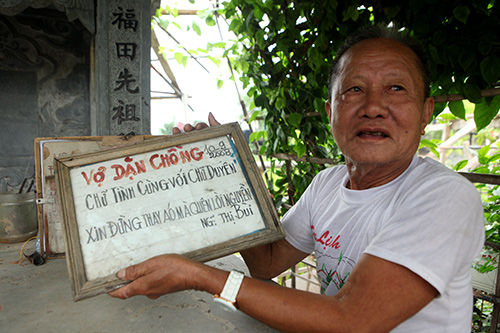 福田先祖
VỢ DẶN CHỒNG
CHỮ TÌNH CÙNG VỚI CHỮ DUYÊN
XIN ĐỪNG THAY ÁO MÀ QUÊN LỜI NGUYỀN
NG: THỊ BÙI
Lịch